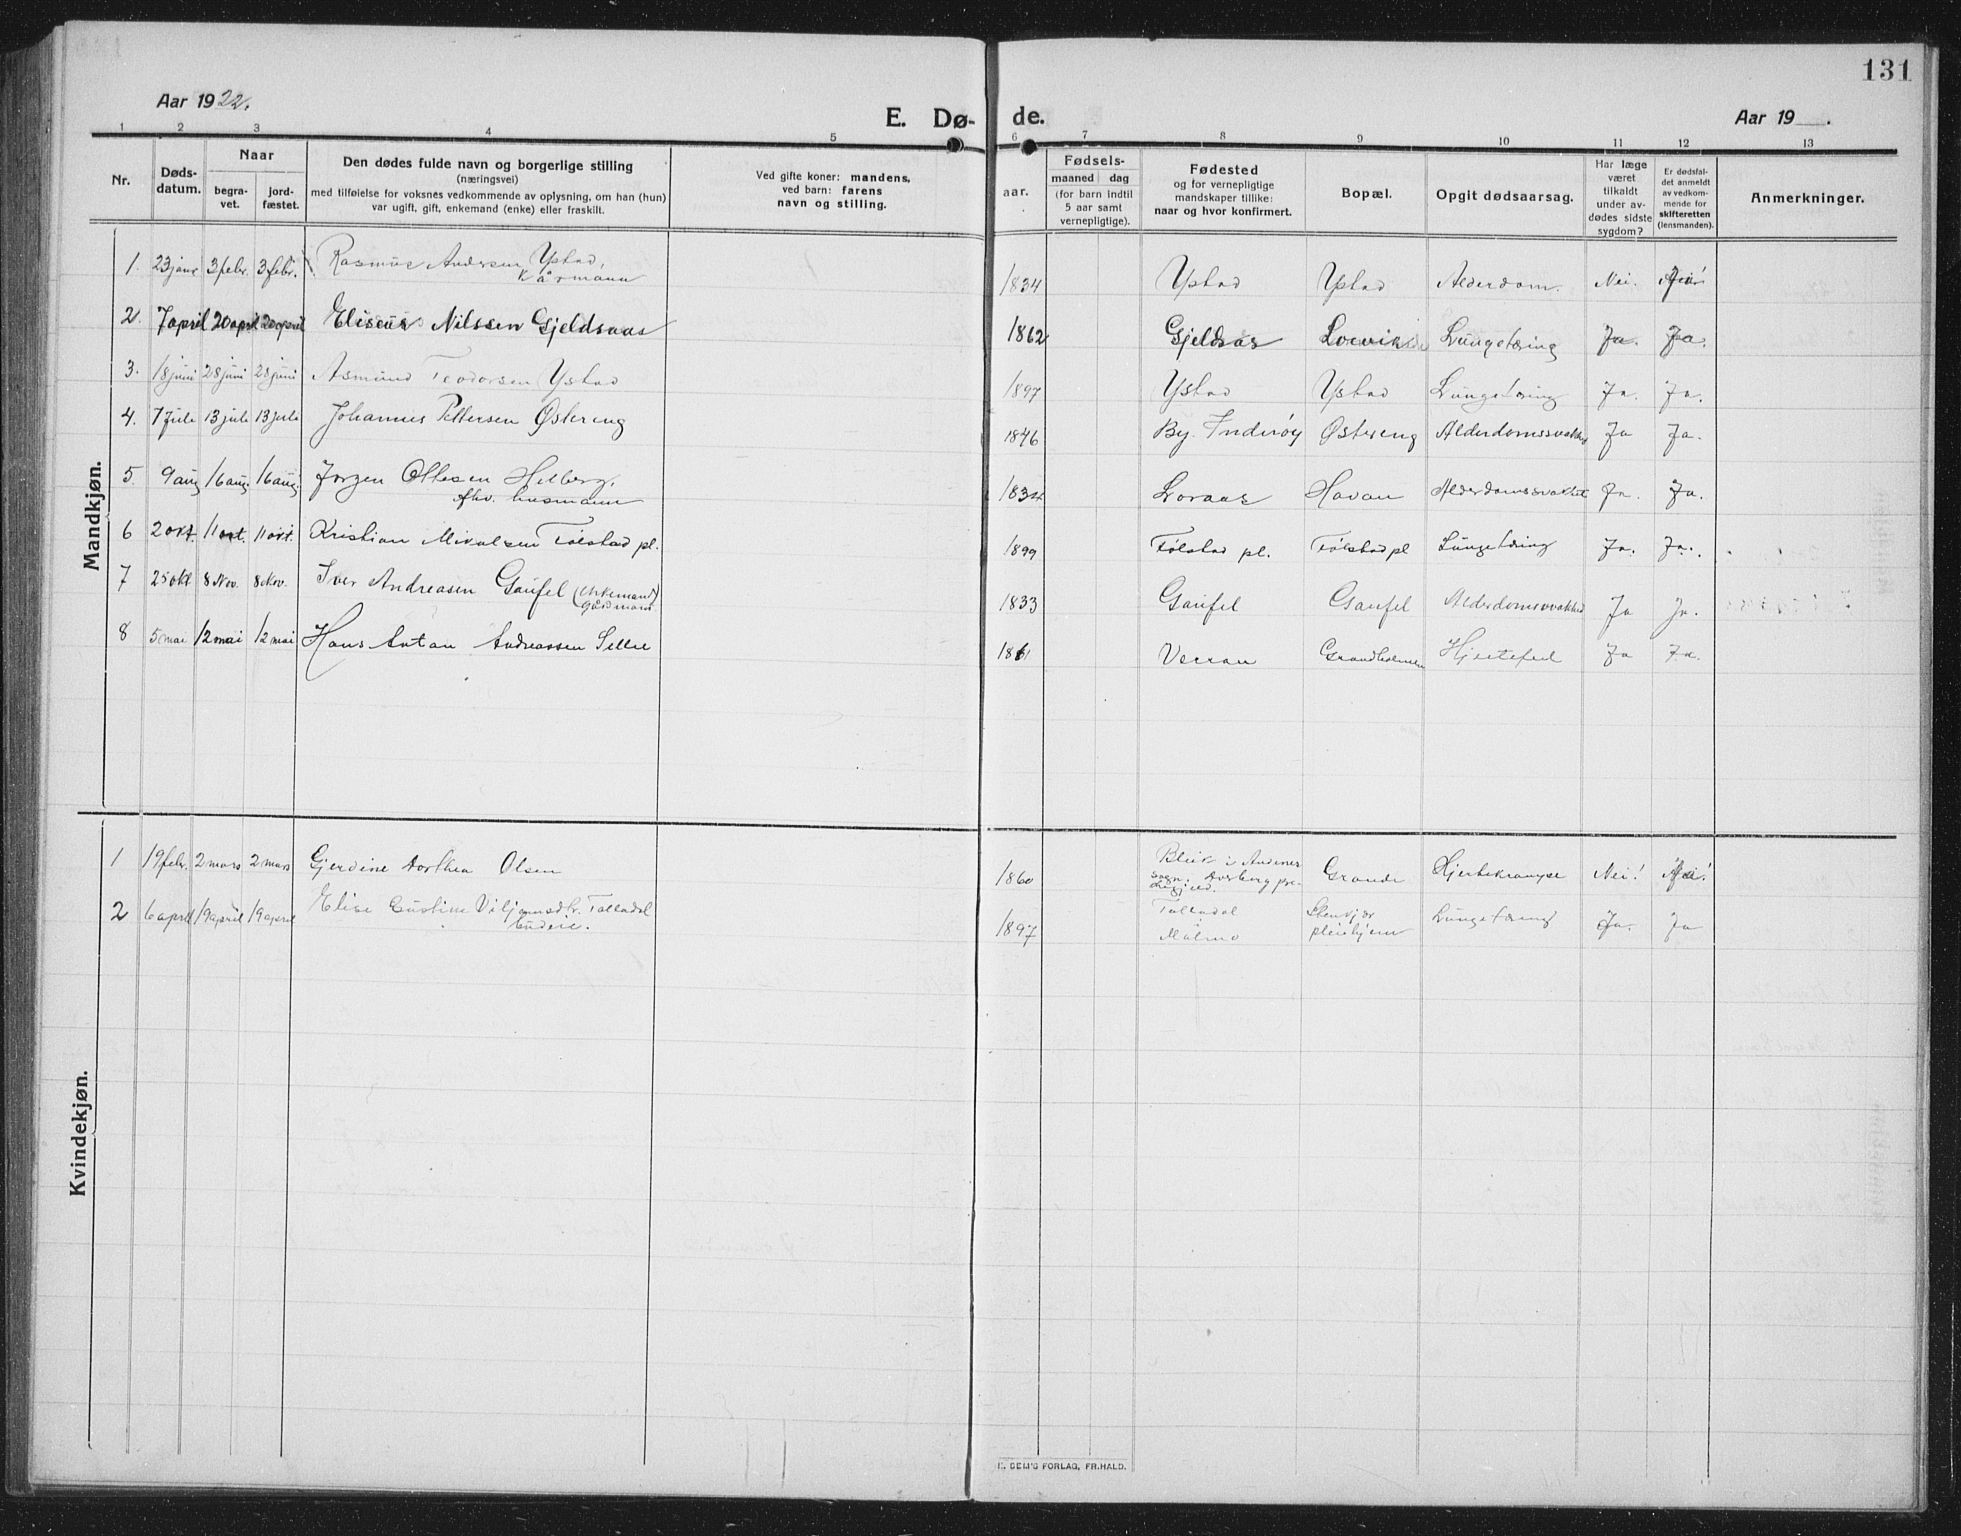 131
Aar 1922.
E. Dø- de.
Aar 19 .
1 2 3 4 5 6 7 8 9 10 11 12 13
Nr.
Døds-
datum.
Naar
begra-
vet.
jord-
fæstet.
Den dødes fulde navn og borgerlige stilling
(næringsvei)
med tilføielse for voksnes vedkommende av oplysning, om han (hun)
var ugift, gift, enkemand (enke) eller fraskilt.
Ved gifte koner: mandens,
ved barn: farens
navn og stilling.
aar.
Fødsels-
maaned dag
(for barn indtil
5 aar samt
vernepligtige).
Fødested
og for vernepligtige
mandskaper tillike:
naar og hvor konfirmert.
Bopæl.
Opgit dødsaarsag.
Har læge
været
tilkaldt
under av-
dødes sidste
sygdom?
Er dødsfal-
det anmeldt
av vedkom-
mende for
skifteretten
(lensmanden).
Anmerkninger.
Mandkjøn.
1. 23 janr 3 febr. 3 febr. Rasmus Andersen Ystad, 1834 Ystad Ystad Alderdom. Nei.
kårmann
2. 7 april 20 april 20 april Eliseus Nilssen Gjeldsaas 1862 Gjeldsas Lungetæring Ja. Ja.
3. 18 juni 28 juni 28 juni Asmund Teodorsen Ystad 1897 Ystad Ystad Lungetæring Ja. Ja.
4. 7 jule 13 jule 13 jule Johannes Pettersen Østereng 1846 By. Inderøy Østereng Alderdomssvakhed Ja Ja.
5. 9 aug 16 aug. 16 aug. Jørgen Ottesen Helberg, 1834 Loraas Havan Alderdomssvakhet Ja. Ja.
fhv. husmann
6 2 okt. 11 okt. 11 okt. Kristian Mikalsen Følstad pl. 1899 Følstad pl. Følstad pl Lungetæring Ja. Ja.
7 25 okt 8 Nov. 8 Nov. Iver Andreasen Gaufel (Enkemand) 1833 Gaufel Gaufel Alderdomssvakhed Ja Ja.
gårdmann
8 5 mai 12 mai 12 mai Hans Anton Andreassen Sellie 1861 Verran Grandholmen Hjertefeil Ja Ja.
Kvindekjøn.
1 19 febr. 2 mars 2 mars Gjerdine Dorthea Olsen 1860 Bleik i Andenes Grande Hjertekrampe Nei!
sogn. Dverberg pre-
stegjeld.
2 6 april 19 april 19 april Elise Gustine Viljamsdtr. Folladal 1897 Folladal Stenkjær Lungetæring Ja. Ja
Budeie. Malmo pleiehjem
E. SEM'S FORLAG, FR.HALD.